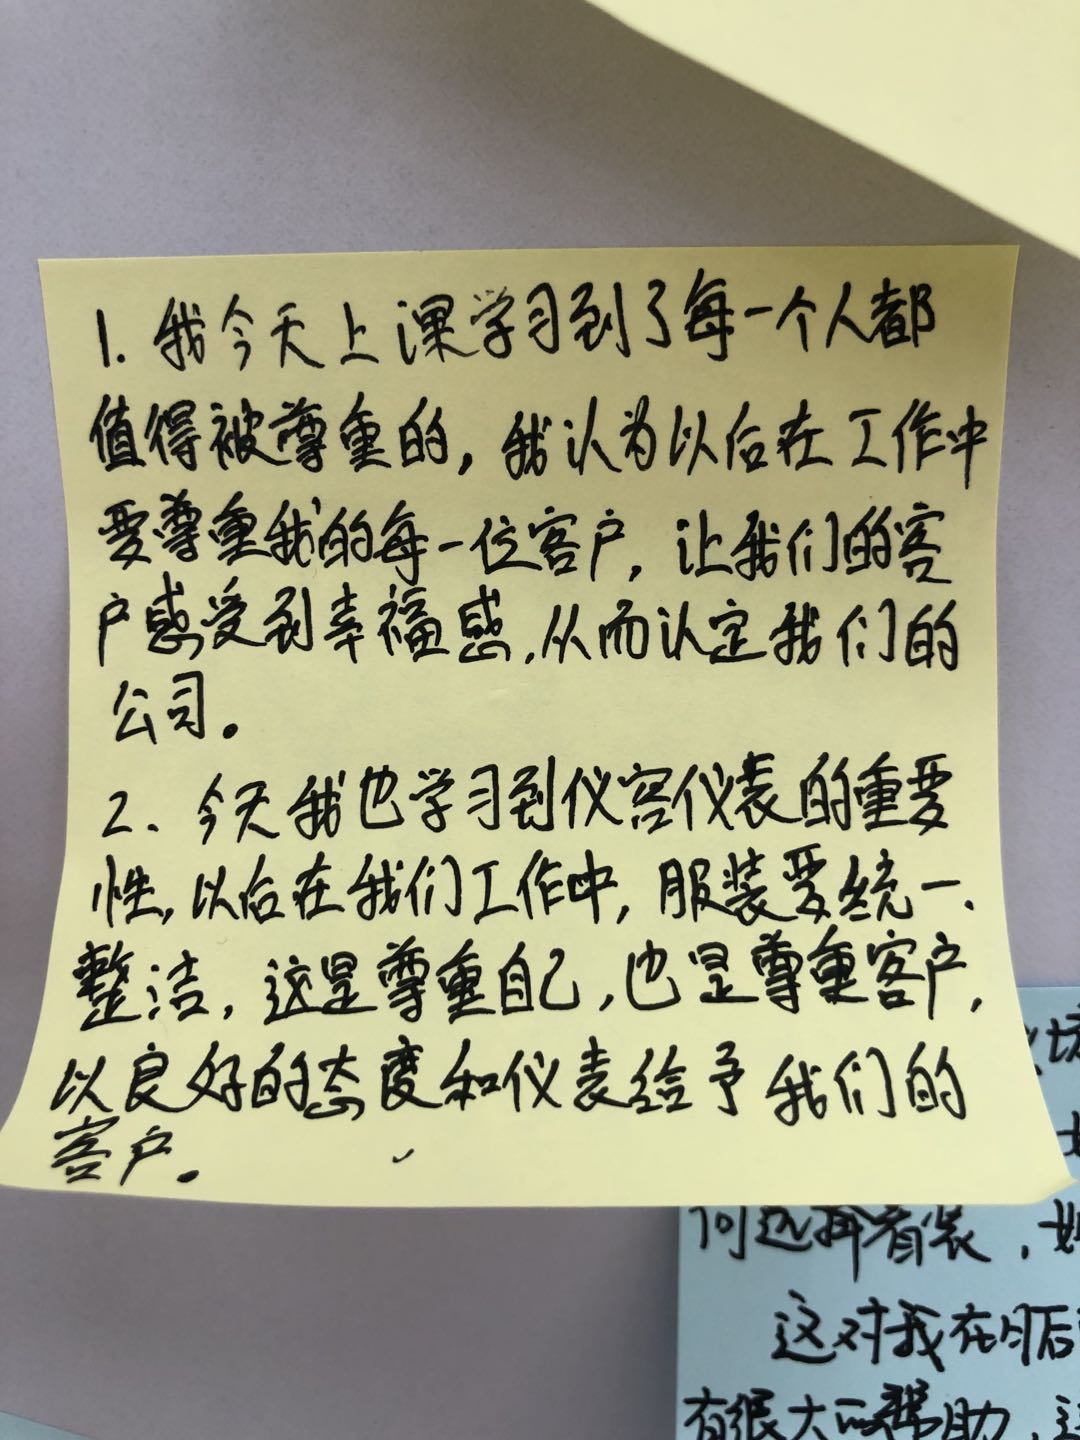 1. 我今天上课学习到了每一个人都
值得被尊重的，我认为以后在工作中
要尊重我的每一位客户，让我们的客
户感受到幸福感，从而认定我们的
公司。
2. 今天我也学习到仪容仪表的重要
性，以后在我们工作中，服装要统一、
整洁，这是尊重自己，也是尊重客户，
以良好的态度和仪表给予我们的
客户。
何选择着装，如
这对我在日后
有很大的帮助，这